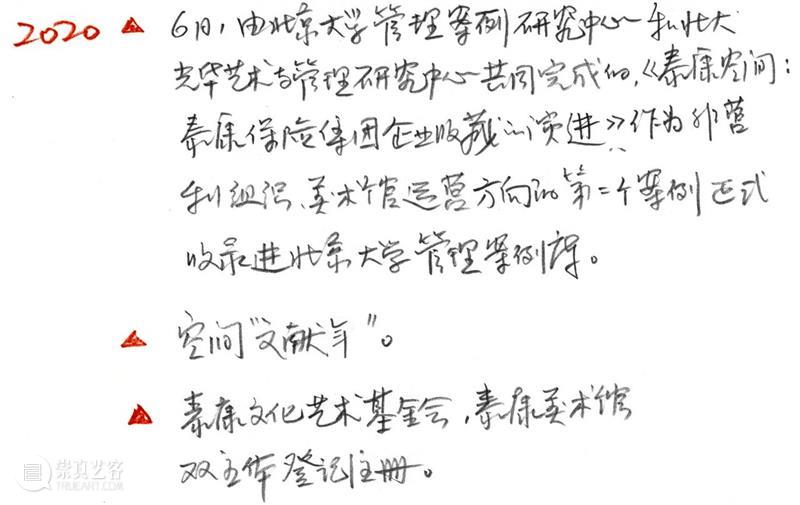 2020 ▲ 6月，由北京大学管理案例研究中心和北大
光华艺术与管理研究中心共同完成的，《泰康空间：
泰康保险集团企业收藏的演进》作为非营
利组织、美术馆运营方向的第二个案例正式
收录进北京大学管理案例库。
▲ 空间"文献年"。
▲ 泰康文化艺术基金会，泰康美术馆
双主体登记注册。
崇真艺客
TRUEART.COM